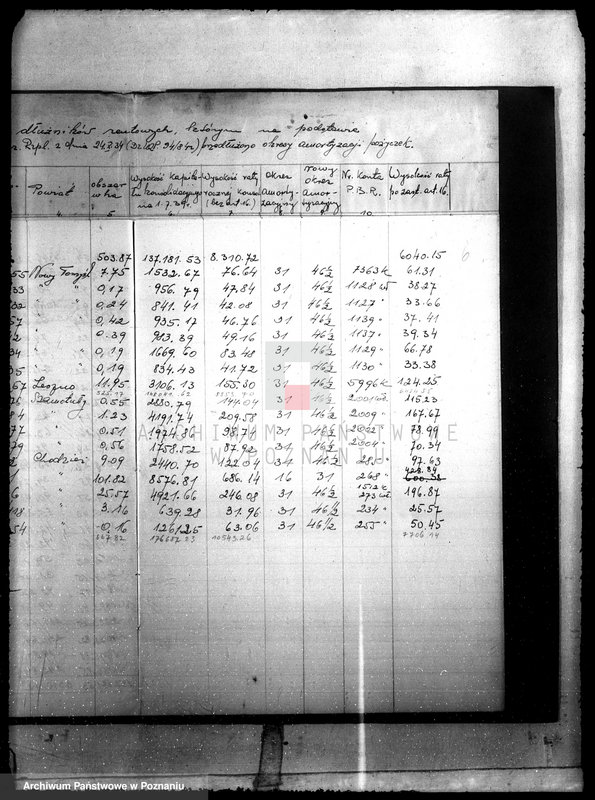 dłużników rentowych, którym na podstawie
r. Rzpl. z dnia 24.X.34 przedłużono okresy amortyzacji pożyczek.
Powiat obszar w ha Wysokość kapitału konsolidacyjnego na 1.7.39. Wysokość raty rocznej (bez art. 16.) Okres amortyzacyjny Nowy okres amortyzacyjny Nr. Konta P.B.R. Wysokość raty po zast. art. 16.
4. 5 6 7 8 9 10
503.87 137.181.53 8.310.72 6040.15
55 Nowy Tomyśl 7.75 1532.67 76.64 31 46½ 7363k 61.31
33 " 0,17 956.79 47.84 31 46½ 1128 38.27
32 " 0,24 841.41 42.08 31 46½ 1127 " 33.66
57 " 0,42 935.17 46.76 31 46½ 1139 " 37.41
" 0.39 983.39 49.16 31 46½ 1137 " 39.34
34 " 0,19 1669.60 83.48 31 46½ 1129 " 66.78
35 " 0,19 834.43 41.72 31 46½ 1130 " 33.38
67 Leszno 11.95 3106.13 155.30 31 46½ 5996k 124.25
Szamotuły 0.55 2880.79 144.04 31 46½ 2001 115.23
84 " 1.23 4191.74 209.58 31 46½ 2009 " 167.67
77 " 0,51 1974.36 98.74 31 46½ 2002 " 78.99
79 " 0,56 1758.52 87.92 31 46½ 2004 " 70.34
Chodzież 9.09 2440.70 122.04 31 46½ 285 " 97.63
" 101.82 8576.81 686.14 16 31 268 " 428.84
" 25.57 4921.66 246.08 31 46½ 273 196.87
118 " 3.16 639.28 31.96 31 46½ 234 " 25.57
54 " 0.16 1261.25 63.06 31 46/2 255 " 50.45
667.82 176687.23 10543.26 7706.14
ARCHIWUM PAŃSTWOWE
W POZNANIU
Archiwum Państwowe w Poznaniu